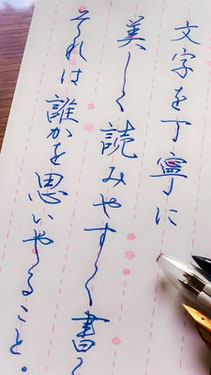 文字を丁寧に
美しく読みやすく書く
それは誰かを思いやること。